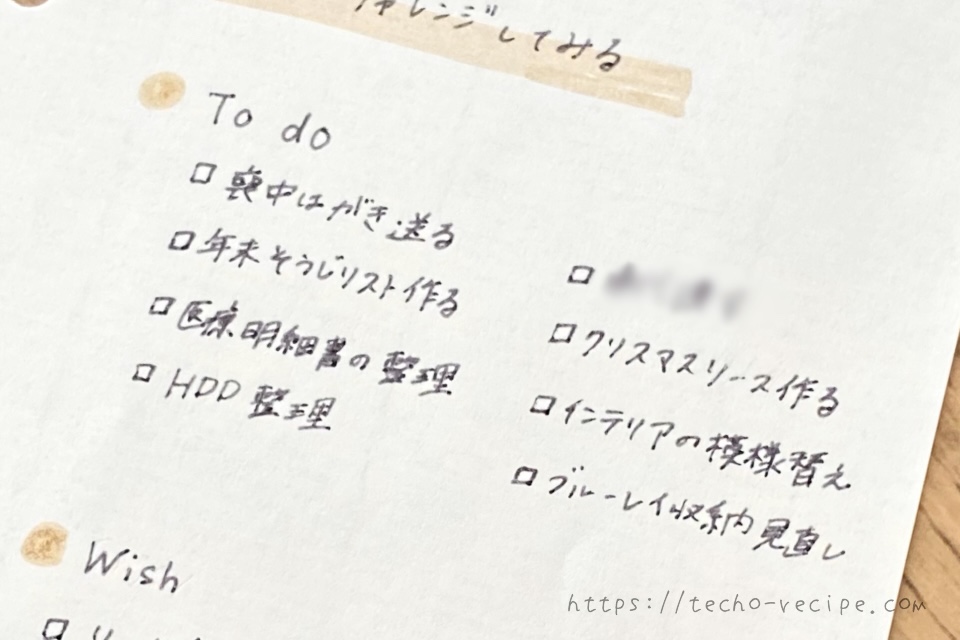 チャレンジしてみる
To do
□ 喪中はがき送る
□ 年末そうじリスト作る
□ 医療明細書の整理
□ HDD 整理
□
□ クリスマスリース作る
□ インテリアの模様替え
□ ブルーレイ収納見直し
Wish
□
https://techo-recipe.com